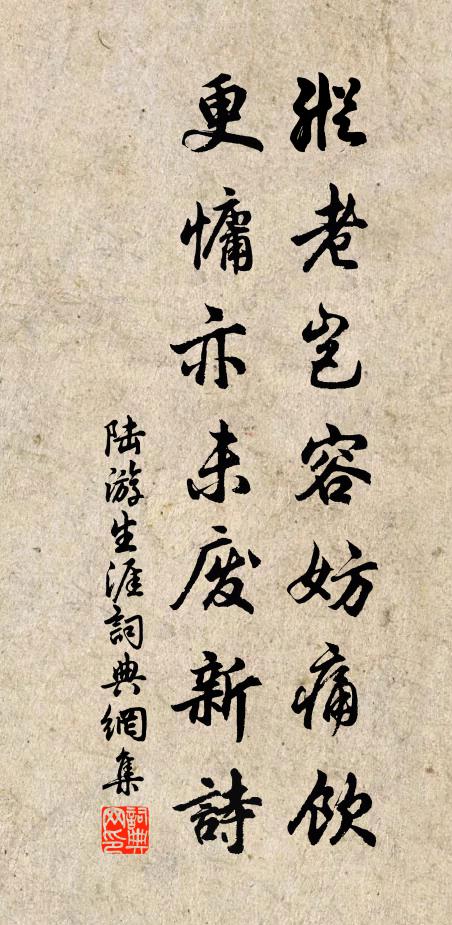 縱老豈容妨痛飲
更慵亦未廢新詩
陸游生涯詞典網集
詞典網印